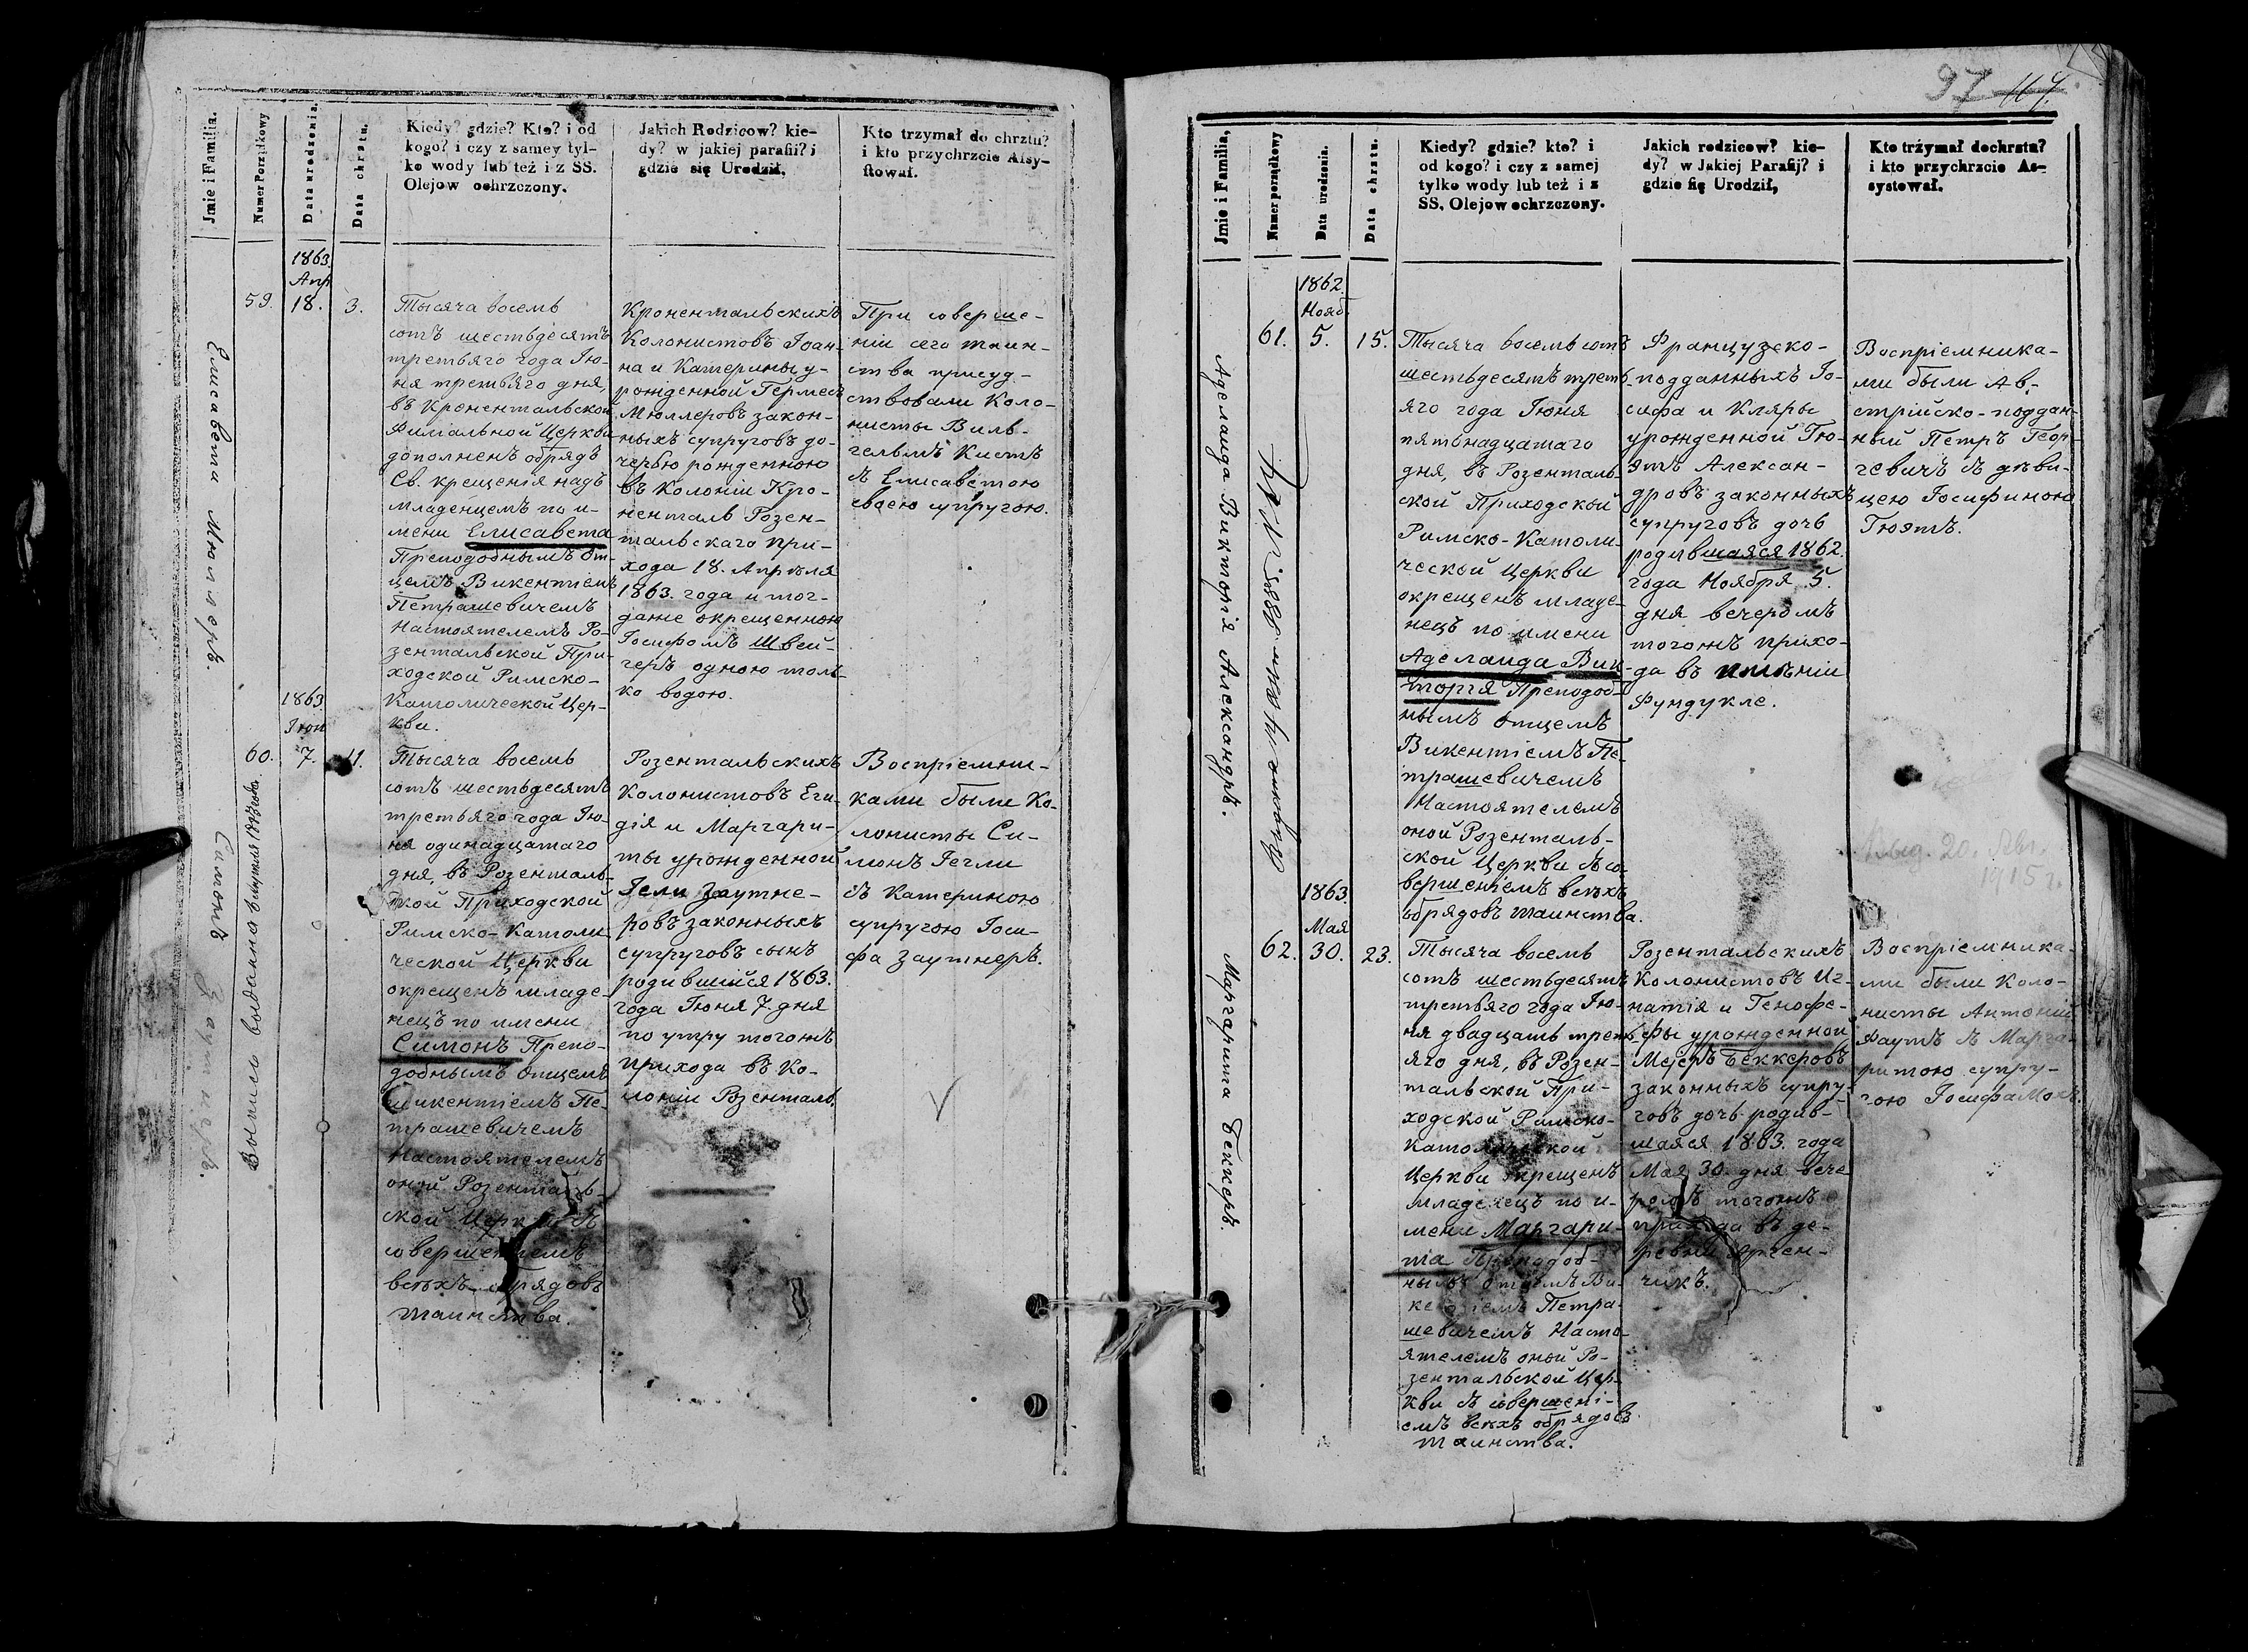 Jmie i Familia.
Numer Porządkowy
Data urodzenia.
Data chrztu.
Kiedy? gdzie? Kto? i od
kogo? i czy z samey tyl-
ko wody lub też i z SS.
Olejow ochrzczony.
Jakich Rodzicow? kie-
dy? w jakiej parafii? i
gdzie się Urodził.
Kto trzymał do chrztu?
i kto przychrzcie Assy-
stował.
1863.
Апр
59.
18.
3.
Елисавета Мюллеръ.
Тысяча восемь
сотъ шестьдесятъ
третьяго года Iю-
ня третьяго дня,
въ Кронентальской
Филіальной Церкви
дополненъ обрядъ
Св. крещенія надъ
младенцемъ по и-
мени Елисавета
Преподобнымъ От-
цемъ Викентіемъ
Петрашевичемъ
Настоятелемъ Ро-
зентальской При-
ходской Римско-
Католической Цер-
кви.
Кронентальскихъ
Колонистовъ Іоан-
на и Катерины у-
рожденной Гермесъ
Мюллеровъ закон-
ныхъ супруговъ до-
черью рожденною
въ Колоніи Кро-
ненталь Розен-
тальскаго при-
хода 18. Апрѣля
1863. года и тог-
даже окрещенною
Іосифомъ Швей-
черъ одною толь-
ко водою.
При соверше-
ніи сего таин-
ства присуд-
ствовали Коло-
нисты Виль-
гельмъ Кистъ
съ Елисаветою
своею супругою.
1863
Іюн
60.
7.
11.
Симонъ Заутнеръ.
Тысяча восемь
сотъ шестьдесятъ
третьяго года Iю-
ня одинадцатаго
дня, въ Розенталь-
ской Приходской
Римско-Католи-
ческой Церкви
окрещенъ младе-
нецъ по имени
Симонъ Препо-
добнымъ Отцемъ
Викентіемъ Пе-
трашевичемъ
Настоятелемъ
оной Розенталь-
ской Церкви съ
совершеніемъ
всѣхъ обрядовъ
таинства.
Розентальскихъ
Колонистовъ Еги-
дія и Маргари-
ты урожденной
Гели Заутне-
ровъ законныхъ
супруговъ сынъ
родившійся 1863.
года Iюня 7. дня
по утру тогожъ
прихода въ Ко-
лоніи Розенталь.
Воспріемни-
ками были Ко-
лонисты Си-
монъ Гегли
съ Катериною
супругою Іоси-
фа Заутнеръ.
97
Jmie i Familia,
Numer porządkowy
Data urodzenia.
Data chrztu.
Kiedy? gdzie? kto? i
od kogo? i czy z samej
tylko wody lub też i z
SS. Olejow ochrzczony.
Jakich rodzicow? kie-
dy? w Jakiej Parafij? i
gdzie się Urodził,
Kto trżymał dochrstu?
i kto przychrzcie As-
systował.
1862.
Нояб.
61.
5.
15.
Аделаида Викторія Александръ.
Тысяча восемь сотъ
шестьдесятъ треть-
яго года Iюня
пятьнадцатаго
дня, въ Розенталь-
ской Приходской
Римско-Католи-
ческой Церкви
окрещенъ младе-
нецъ по имени
Аделаида Вик-
торія Преподоб-
нымъ Отцемъ
Викентіемъ Пе-
трашевичемъ
Настоятелемъ
оной Розенталь-
ской Церкви съ со-
вершеніемъ всѣхъ
обрядовъ таинства.
Французско-
подданныхъ Іо-
сифа и Кляры
урожденной Гю-
ятъ Алексан-
дровъ законныхъ
супруговъ дочь
родившаяся 1862.
года Ноября 5.
дня вечеромъ
тогожъ прихо-
да въ имѣніи
Фундукле.
Воспріемника-
ми были Ав-
стрійско-поддан-
ный Петръ Геор-
гевичъ съ дѣви-
цею Іосифиною
Гюятъ.
20. Авг.
1915 г.
1863.
Мая
62.
30.
23.
Маргарита Беккеръ.
Тысяча восемь
сотъ шестьдесятъ
третьяго года Iю-
ня двадцать треть-
яго дня, въ Розен-
тальской При-
ходской Римско-
Католической
Церкви окрещенъ
младенецъ по и-
мени Маргари-
та Преподоб-
нымъ Отцемъ Ви-
кентіемъ Петра-
шевичемъ Насто-
ятелемъ оной Ро-
зентальской Цер-
кви съ совершені-
емъ всѣхъ обрядовъ
таинства.
Розентальскихъ
Колонистовъ Иг-
натія и Генофе-
фы урожденной
Мејеръ Беккеровъ
законныхъ супру-
говъ дочь родив-
шаяся 1863. года
Мая 30. дня вече
ромъ тогожъ
прихода въ де-
ревни
чикъ.
Воспріемника-
ми были Коло-
нисты Антоній
Фаутъ съ Марга-
ритою супру-
гою Іосифа